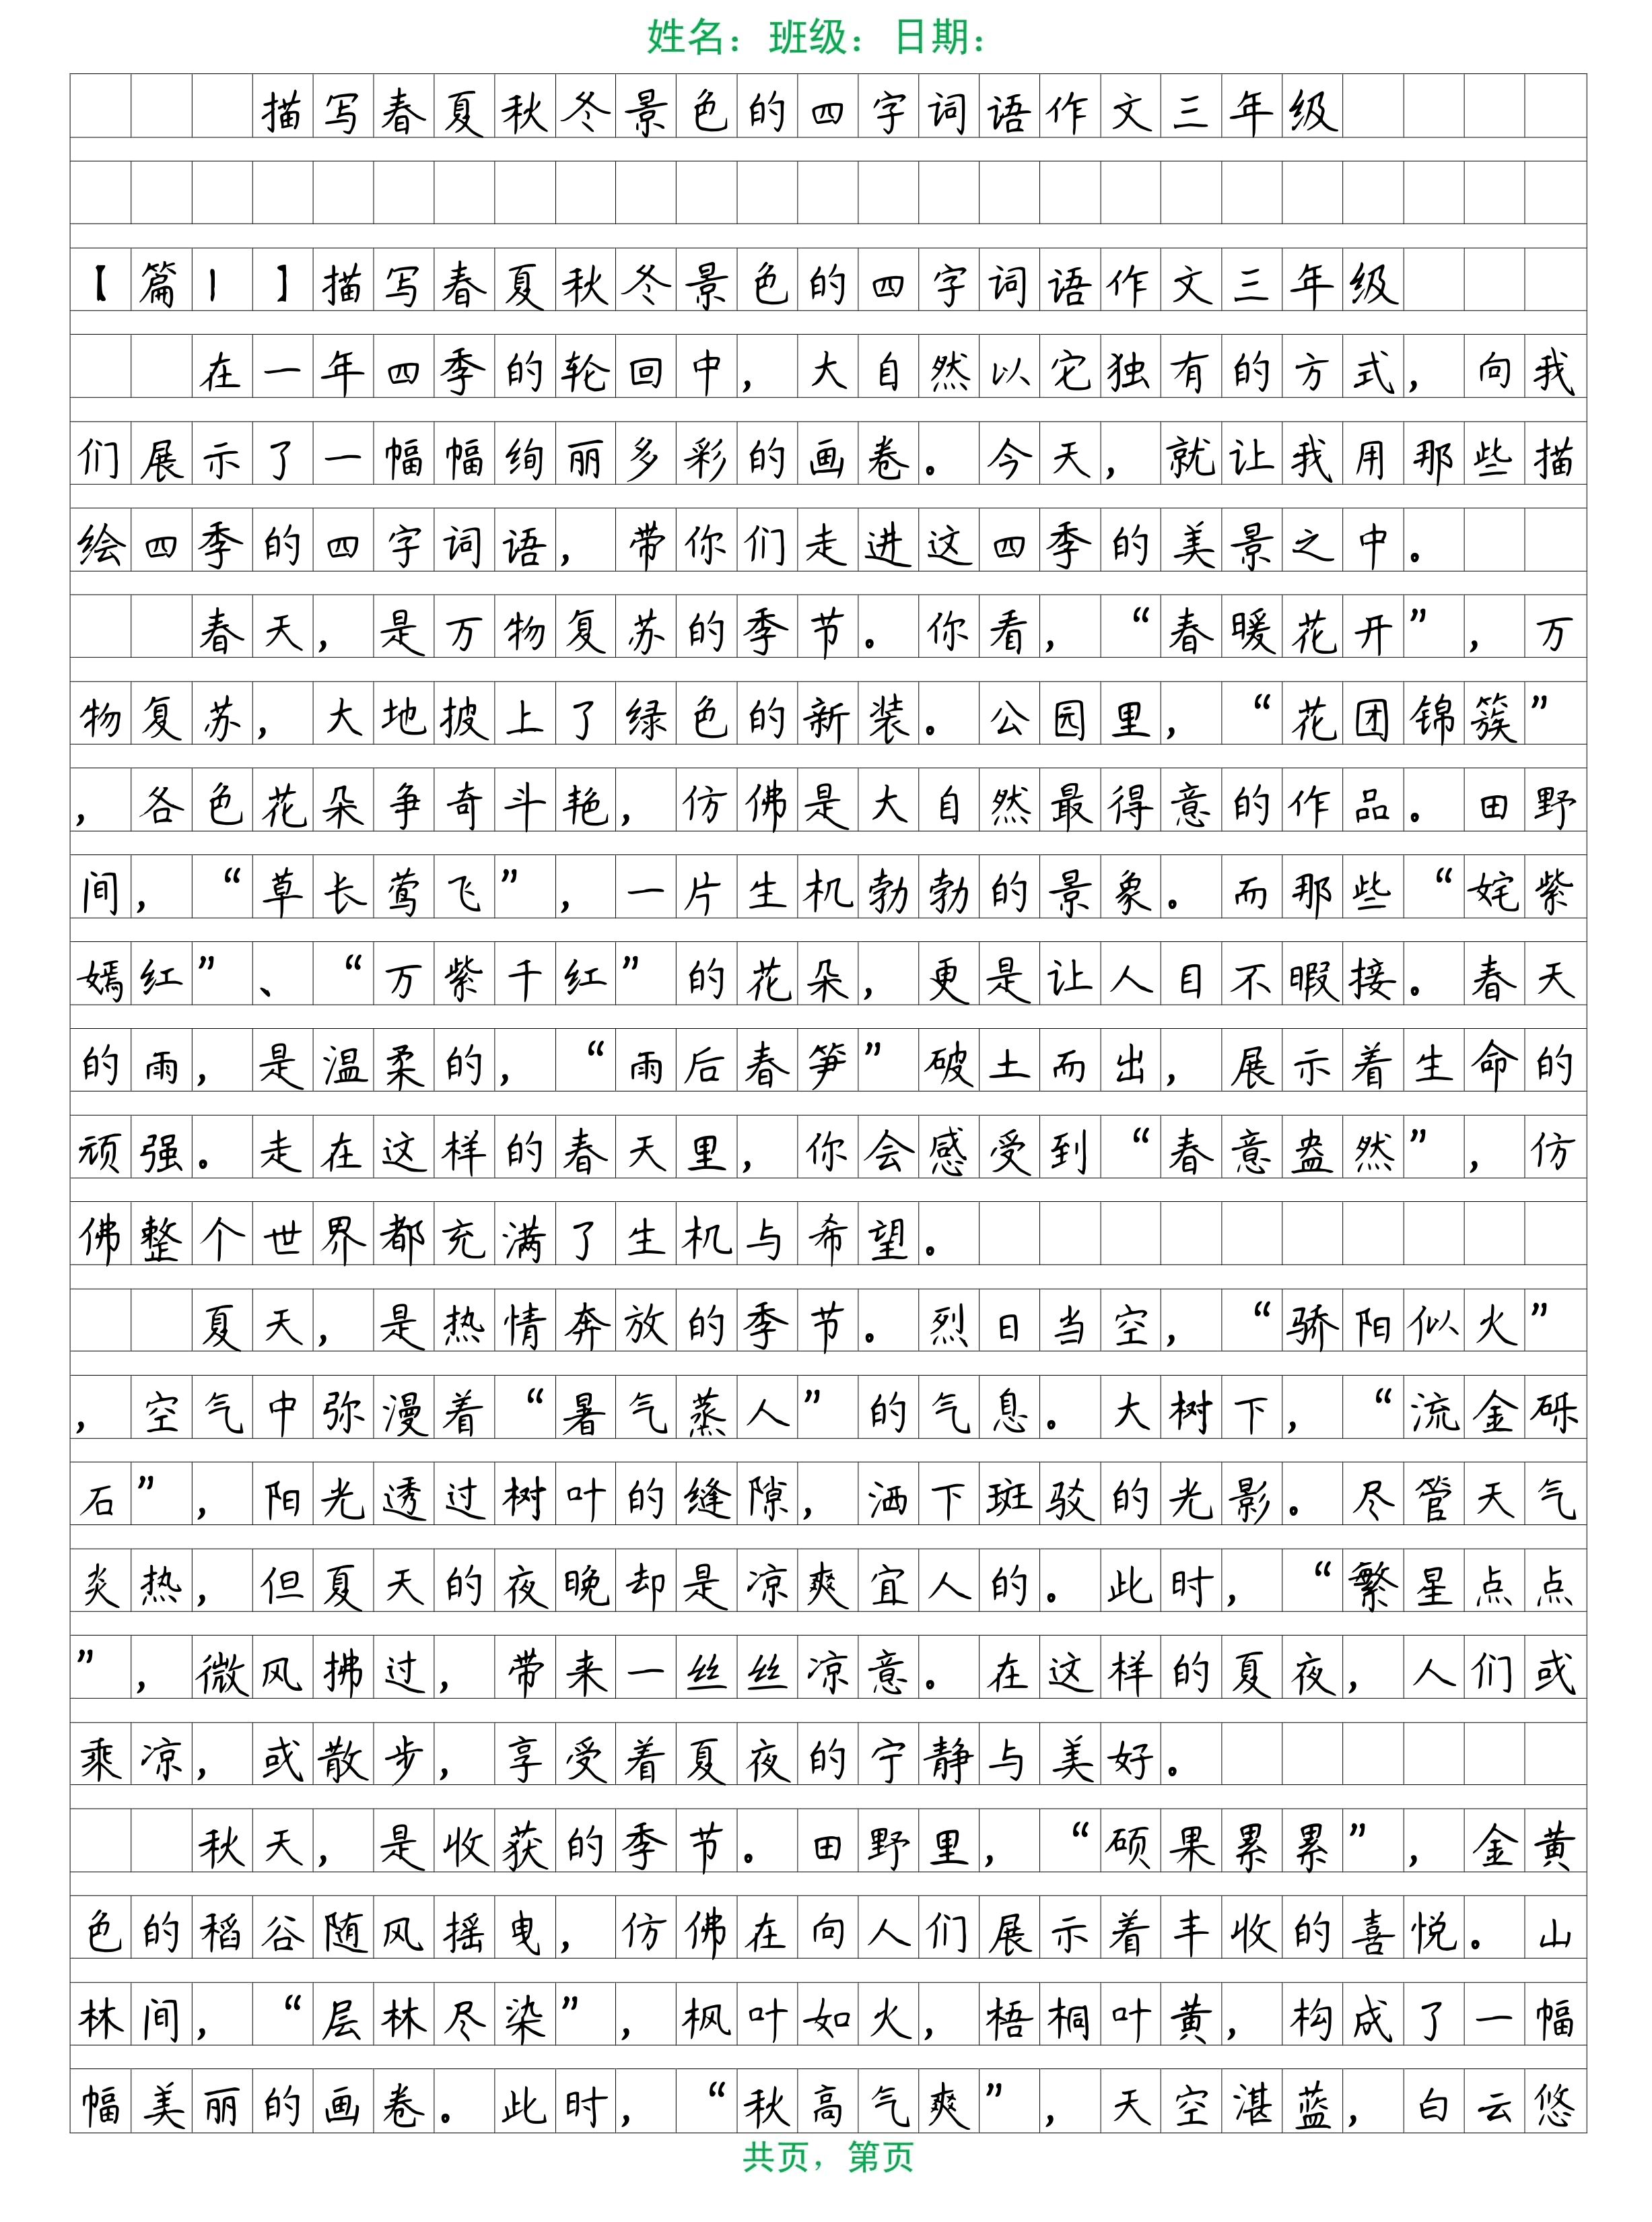 姓名：班级：日期：
描写春夏秋冬景色的四字词语作文三年级
【篇1】描写春夏秋冬景色的四字词语作文三年级
在一年四季的轮回中，大自然以它独有的方式，向我
们展示了一幅幅绚丽多彩的画卷。今天，就让我用那些描
绘四季的四字词语，带你们走进这四季的美景之中。
春天，是万物复苏的季节。你看，“春暖花开”，万
物复苏，大地披上了绿色的新装。公园里，“花团锦簇”
，各色花朵争奇斗艳，仿佛是大自然最得意的作品。田野
间，“草长莺飞”，一片生机勃勃的景象。而那些“姹紫
嫣红”、“万紫千红”的花朵，更是让人目不暇接。春天
的雨，是温柔的，“雨后春笋”破土而出，展示着生命的
顽强。走在这样的春天里，你会感受到“春意盎然”，仿
佛整个世界都充满了生机与希望。
夏天，是热情奔放的季节。烈日当空，“骄阳似火”
，空气中弥漫着“暑气蒸人”的气息。大树下，“流金砾
石”，阳光透过树叶的缝隙，洒下斑驳的光影。尽管天气
炎热，但夏天的夜晚却是凉爽宜人的。此时，“繁星点点
”，微风拂过，带来一丝丝凉意。在这样的夏夜，人们或
乘凉，或散步，享受着夏夜的宁静与美好。
秋天，是收获的季节。田野里，“硕果累累”，金黄
色的稻谷随风摇曳，仿佛在向人们展示着丰收的喜悦。山
林间，“层林尽染”，枫叶如火，梧桐叶黄，构成了一幅
幅美丽的画卷。此时，“秋高气爽”，天空湛蓝，白云悠
共页，第页